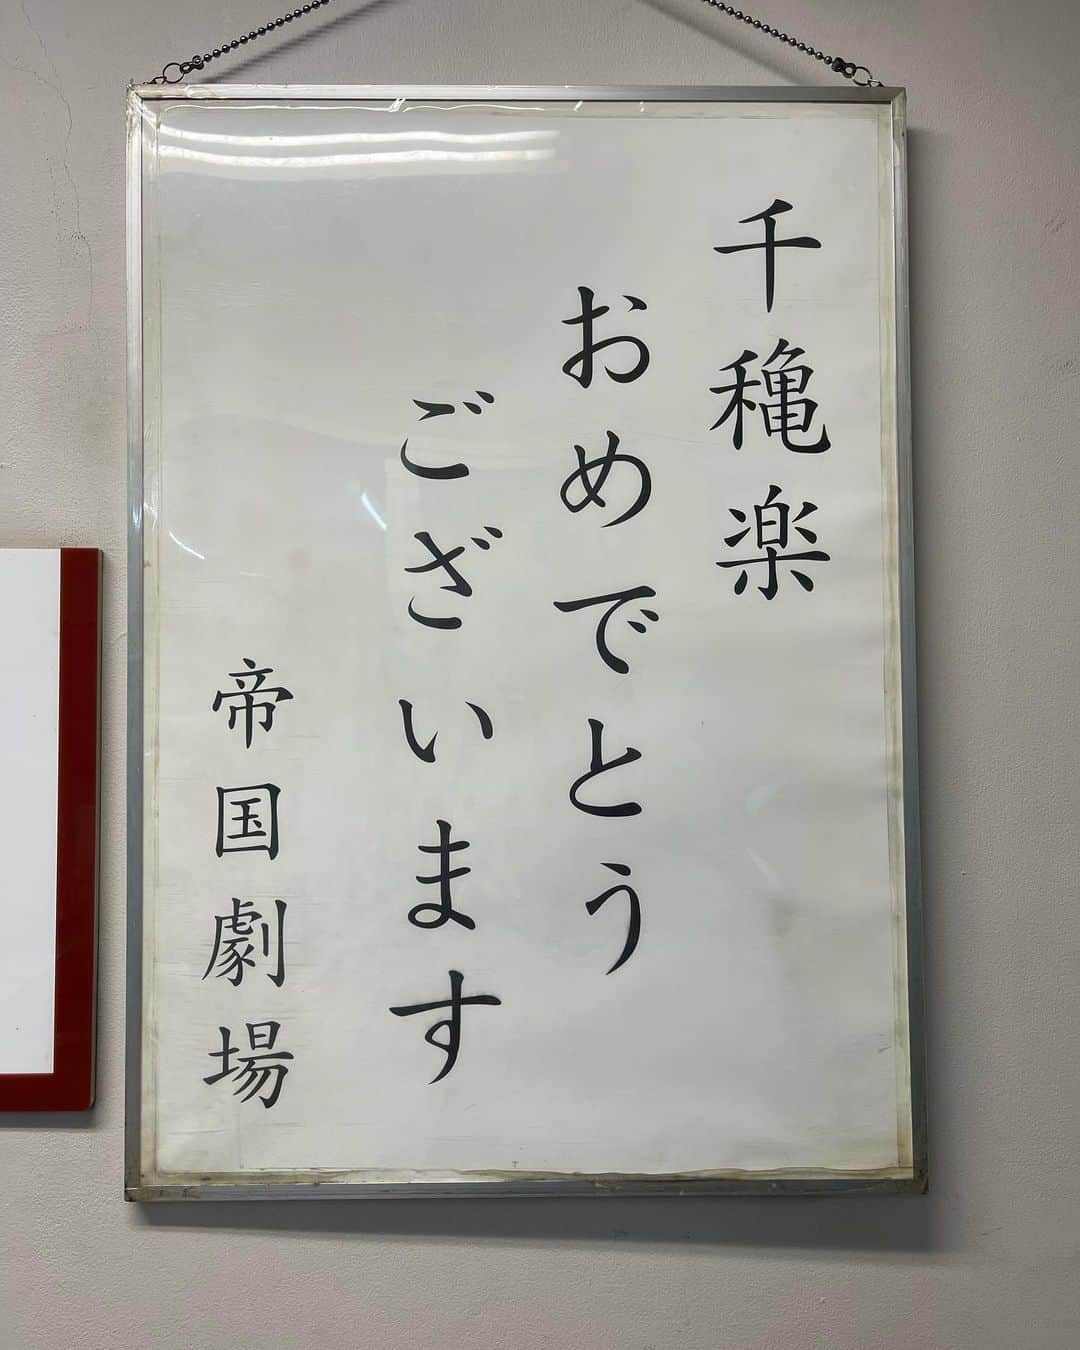 千穐楽
おめでとう
ございます
帝国劇場